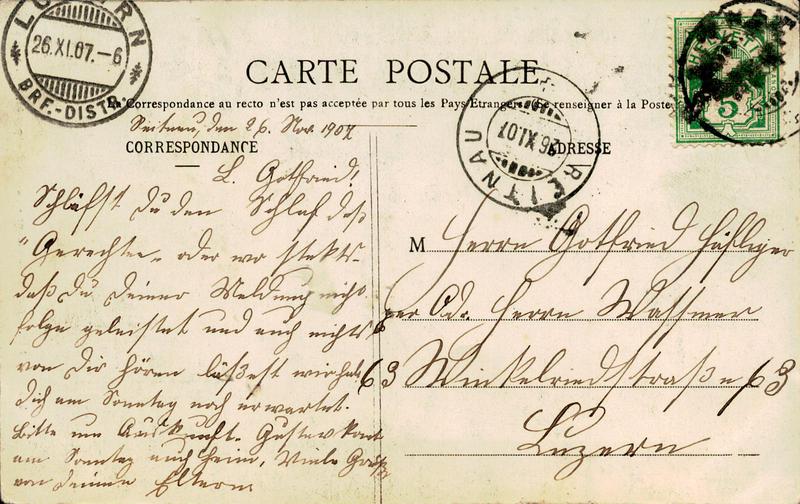 LUZERN
26.XI.07.-6
BRF.-DISTR.
HELVETIA
5
CARTE POSTALE
La Correspondance au recto n'est pas acceptée par tous les Pays Etrangers (Se renseigner à la Poste
Reitnau, den 26. Nov. 1907
CORRESPONDANCE
REITNAU
26 XI.07
ADRESSE
L. Gottfried!
Schläfst Du den Schlaf des
"Gerechten" oder wo stekts
daß Du Deiner Meldung nicht
folge geleistet und auch nichts
von Dir hören läßest wir habe
Dich am Sonntag noch erwartet.
Bitte um Auskunft. Gustav kom̄t
am Sonntag auch heim, Viele Grüße
von Deinen Eltern
M Herrn Gottfried Häfliger
per Ad. Herrn Wassmer
63 Winkelriedstraße 63
Luzern